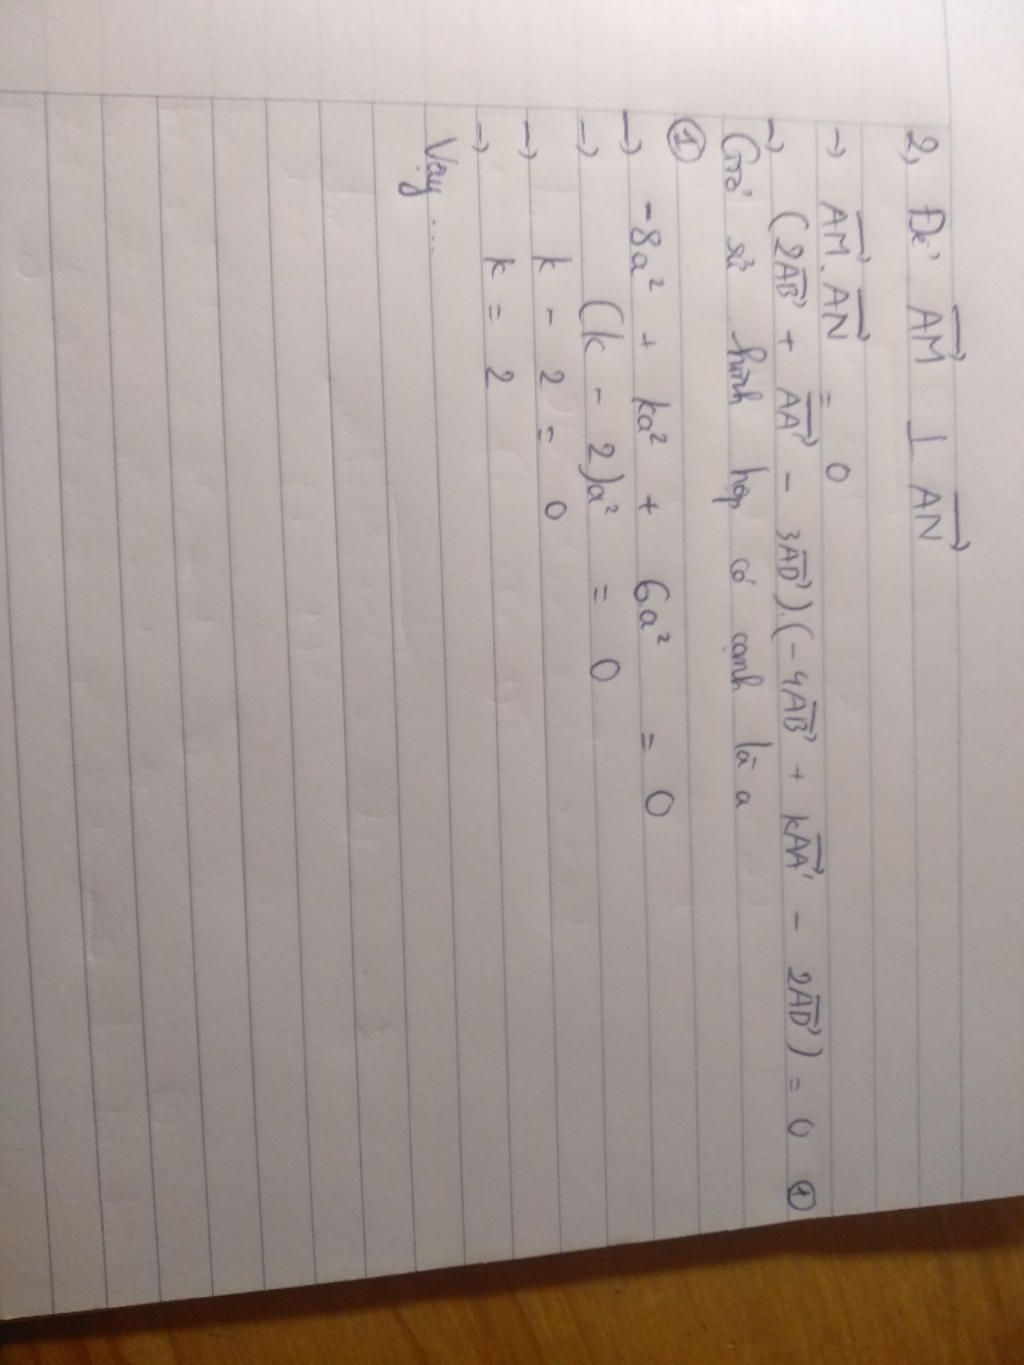 2, Để $\overrightarrow{AM}$ ⊥ $\overrightarrow{AN}$
→ $\overrightarrow{AM}$.$\overrightarrow{AN}$ = 0
→ (2$\overrightarrow{AB}$ + $\overrightarrow{AA'}$ - 3$\overrightarrow{AD}$).(-4$\overrightarrow{AB}$ + k$\overrightarrow{AA'}$ - 2$\overrightarrow{AD}$) = 0 ①
Giả sử hình hộp có cạnh là a
①
→ -8a² + ka² + 6a² = 0
→ (k - 2)a² = 0
→ k - 2 = 0
→ k = 2
Vậy ...